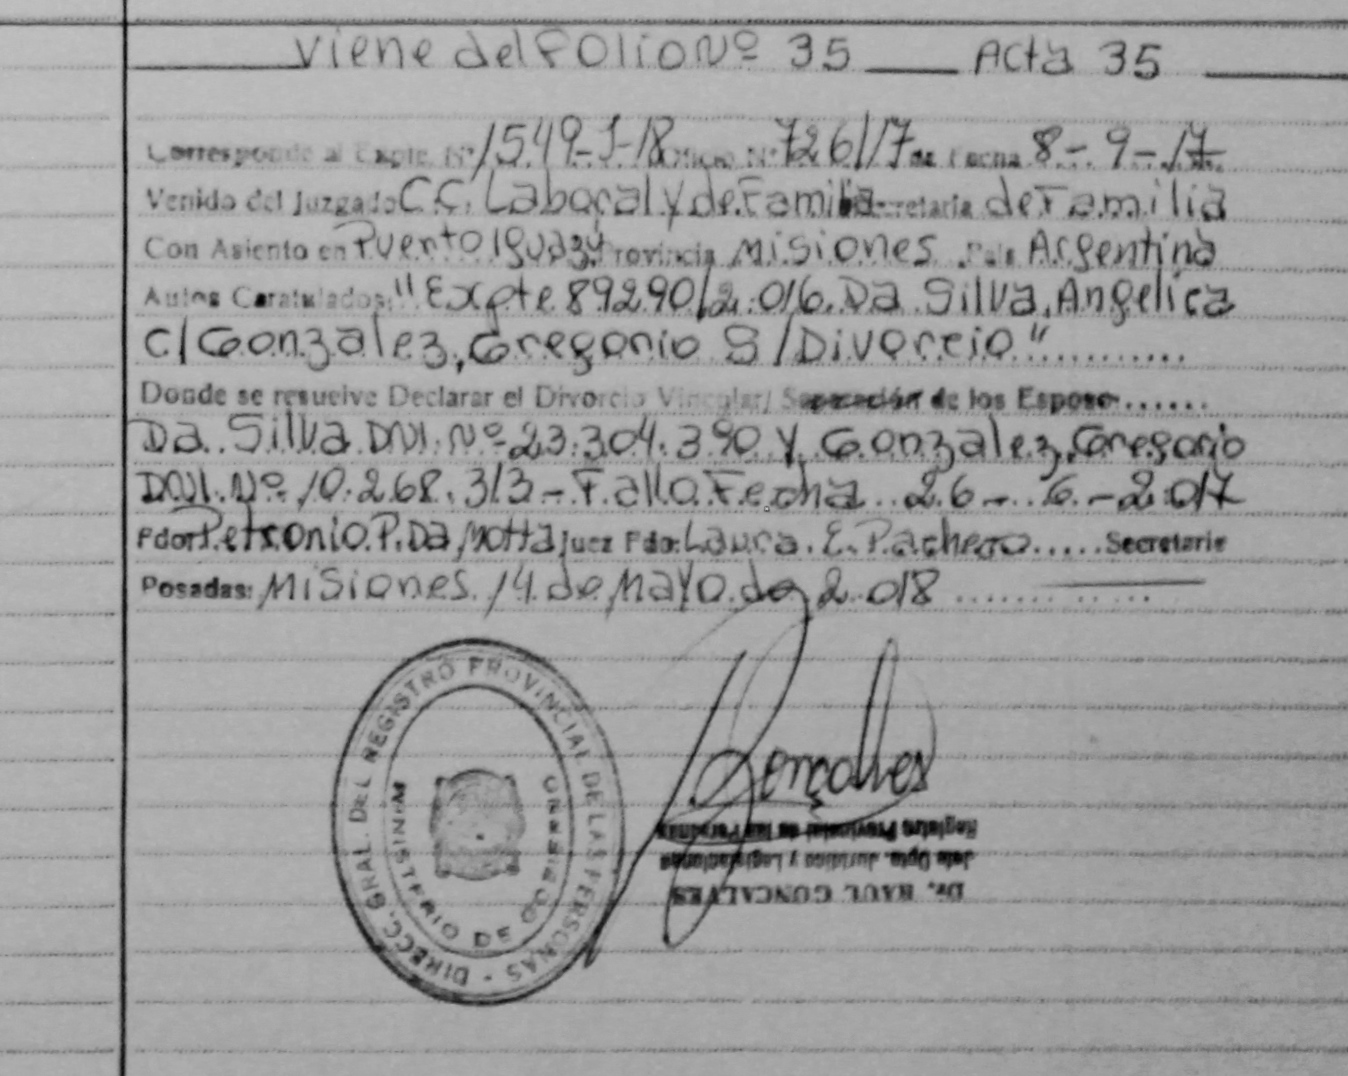 Viene del Folio Nº 35 ___ Acta 35
Corresponde al Expte. Nº 1549-J-18 Oficio Nº 726/17 de Fecha 8-9-17
Venido del Juzgado C.C. Laboral y de Familia Secretaria de Familia
Con Asiento en Puerto Iguazú Provincia Misiones Pais Argentina
Autos Caratulados: "Expte 89290/2.016. Da Silva, Angelica
c/Gonzalez, Gregorio S/Divorcio"............
Donde se resuelve Declarar el Divorcio Vincular/ Separación de los Esposo.......
Da Silva DNI. Nº 23.304.390 y Gonzalez, Gregorio
DNI. Nº 10.268.313 - Fallo Fecha 26-6-2017
Fdor Petronio P. Da Motta Juez Fdo: Laura. E. Pacheco ..... Secretaria
Posadas: Misiones 14 de Mayo de 2.018
DIRECC. GRAL. DEL REGISTRO PROVINCIAL DE LAS PERSONAS -
MINISTERIO DE GOBIERNO
Goncalves
Dr. RAUL GONCALVES
Jefe Dpto. Jurídico y Legislaciones
Registro Provincial de las Personas